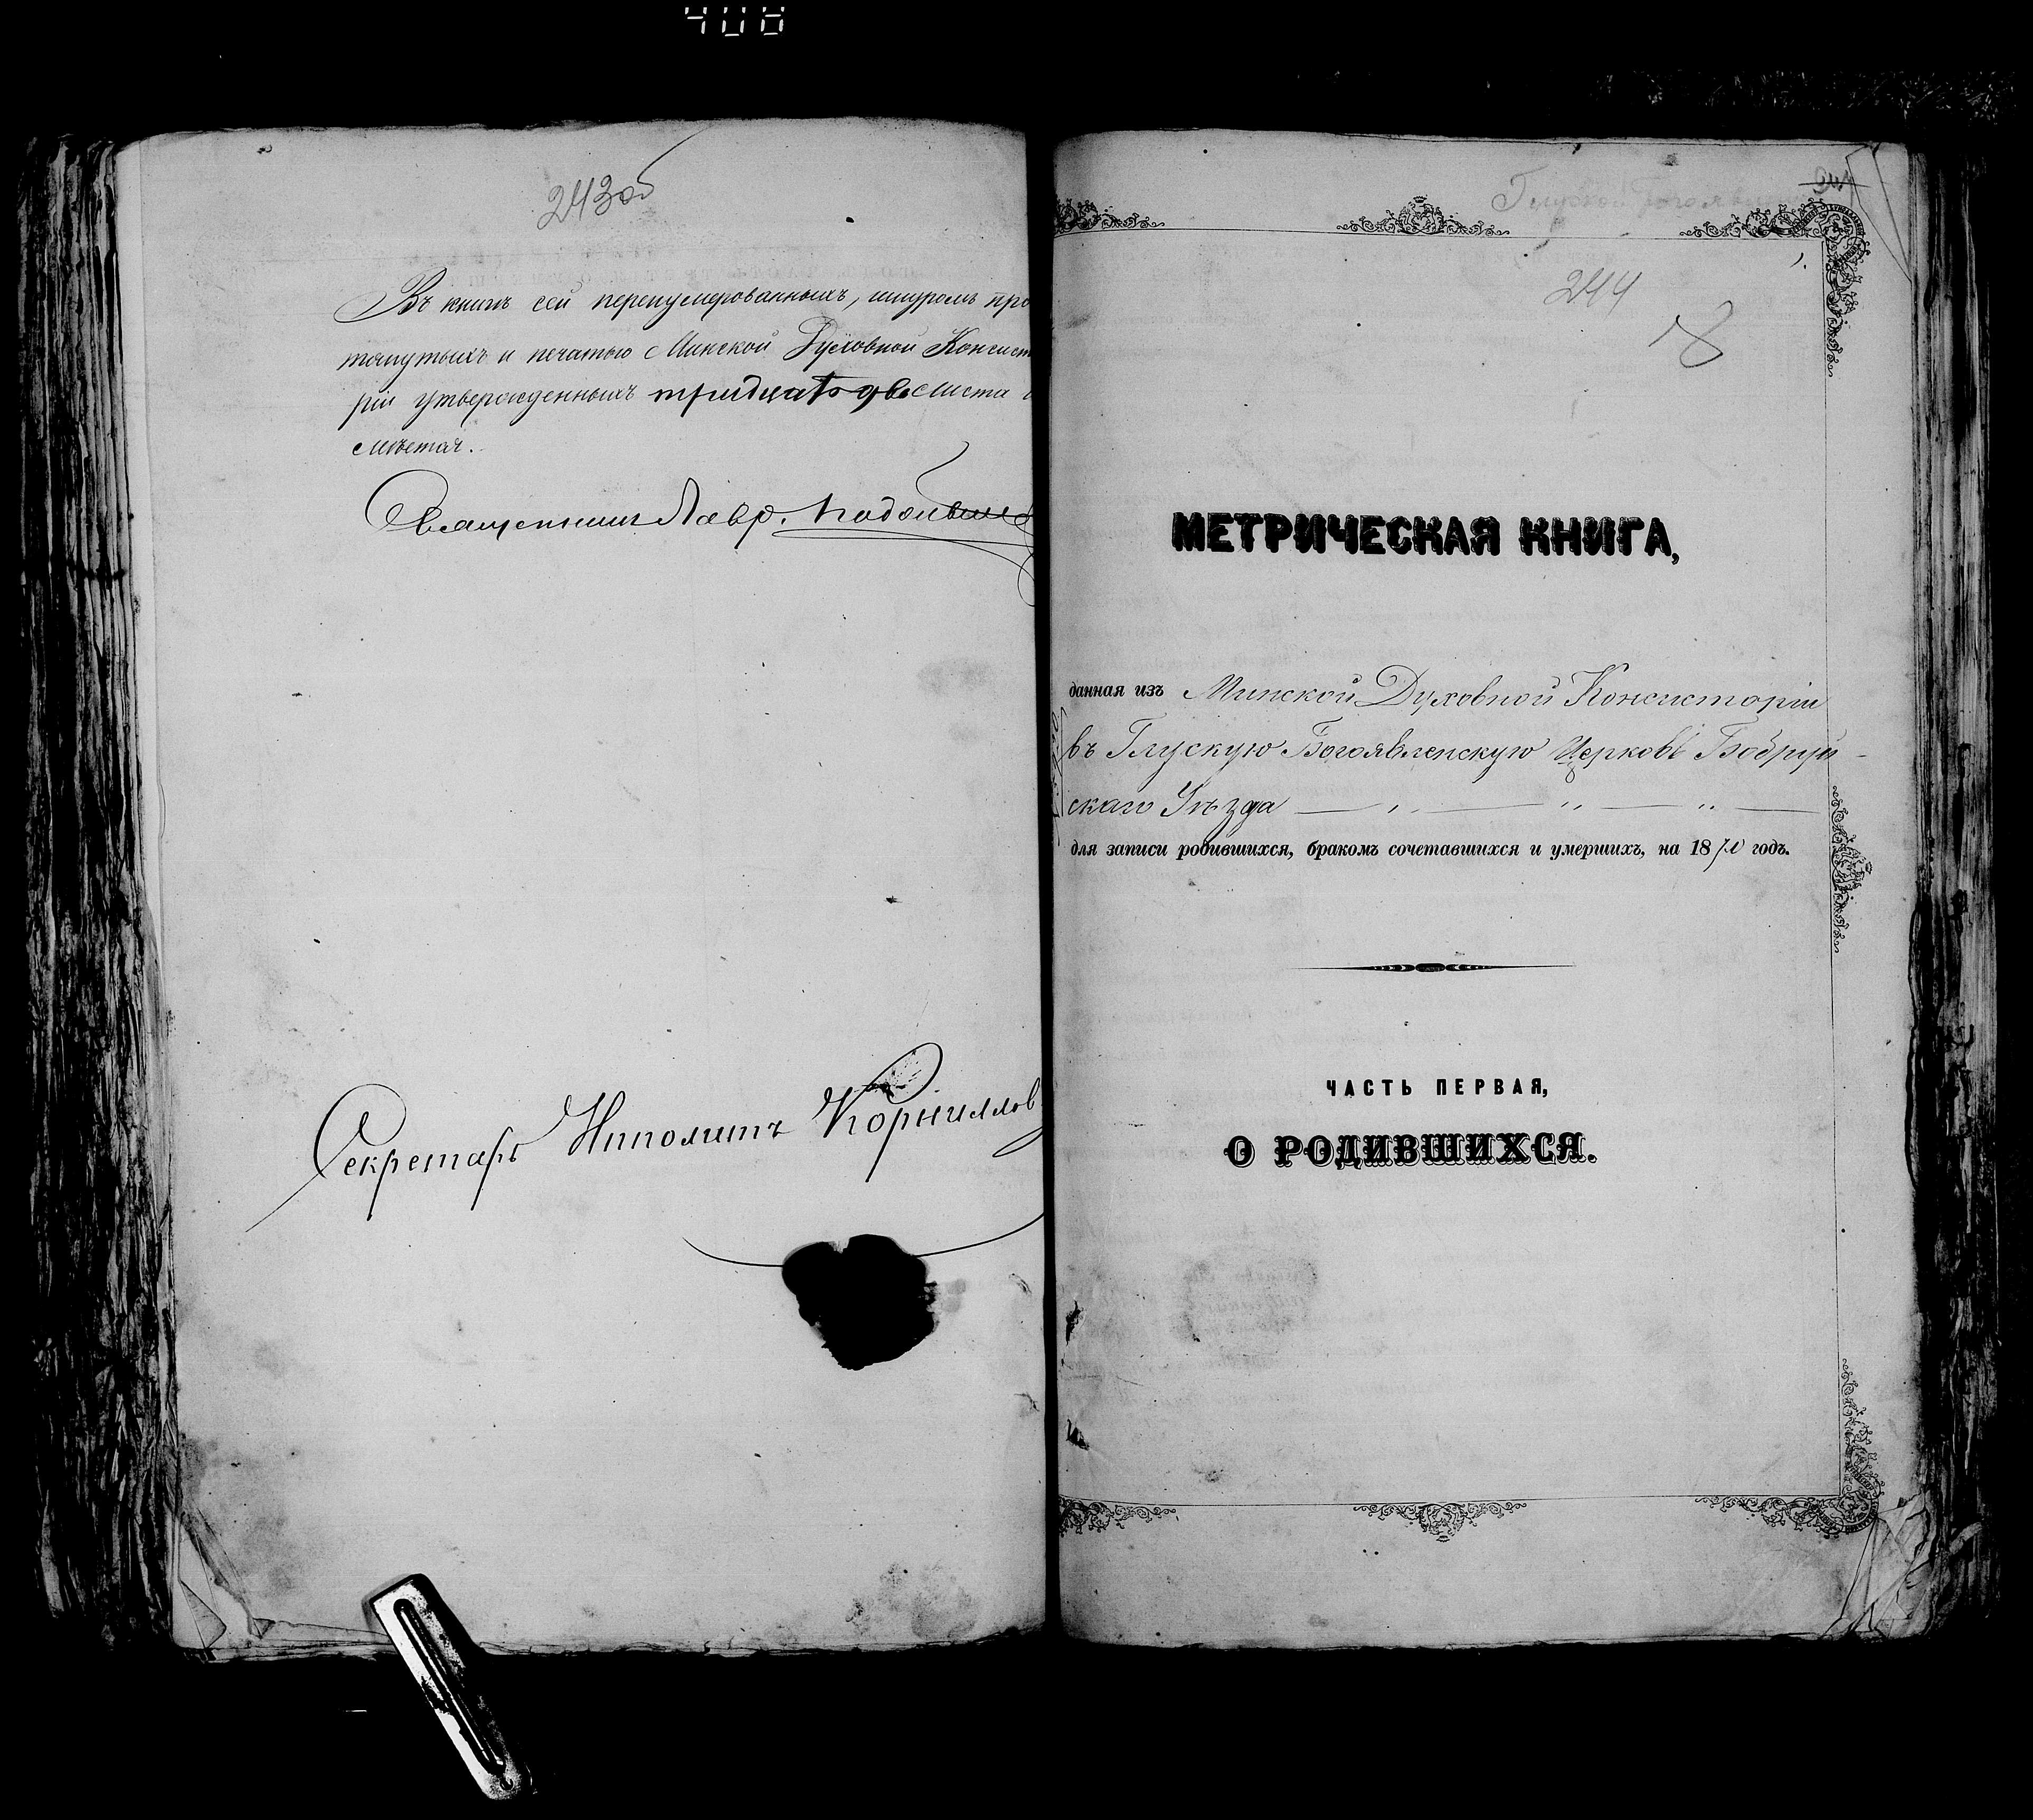 408
243об
Въ книгѣ сей перенумерованныхъ, шнуромъ про
тянутыхъ и печатью Минской Духовной Консисто
ріи утвержденныхъ тридцать два листа
смѣтая.
Священникъ Лавр.
Секретарь Ипполитъ Корниллов
244
18
МЕТРИЧЕСКАЯ КНИГА,
данная изъ Минской Духовной Консисторіи
въ Глускую Богоявленскую Церковь Бобруй-
скаго Уѣзда
для записи родившихся, бракомъ сочетавшихся и умершихъ, на 1870 годъ.
ЧАСТЬ ПЕРВАЯ,
О РОДИВШИХСЯ.